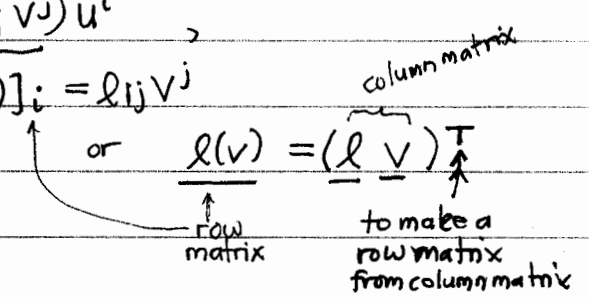 Vʲ) uⁱ
)]ᵢ = ℓᵢⱼ Vʲ ,
column matrix
or ℓ(v) = (ℓ v)ᵀ
row matrix
to make a
row matrix
from column matrix